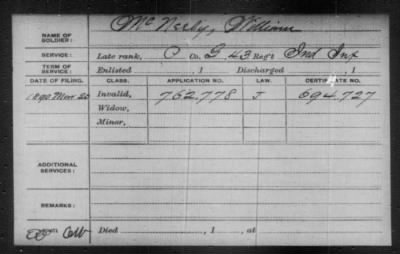 NAME OF SOLDIER: McNerby, William
SERVICE: Late rank, C Co. G, 43 Reg't Ind Inf
TERM OF SERVICE: Enlisted , 1 Discharged , 1
DATE OF FILING. CLASS. APPLICATION NO. LAW. CERTIFICATE NO.
1890 Mar 20 Invalid, 762,778 J 694,727
Widow,
Minor,
ADDITIONAL SERVICES:
REMARKS:
Died , 1 , at